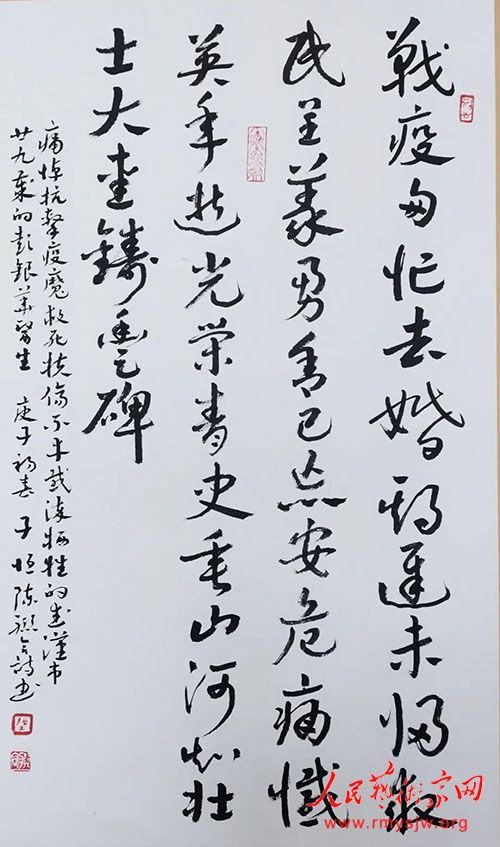 戰疫匆忙去婚期遲未歸救
民呈義勇舍己忘安危痛憾
英年逝光榮青史垂山河知壯
士大愛鑄豐碑
痛悼抗擊疫魔救死扶傷不幸感染犧牲的武漢市
廿九歲的彭銀華醫生 庚子初春 子恒陳聯合詩書
人民藝術家网
www.rmysjw.org